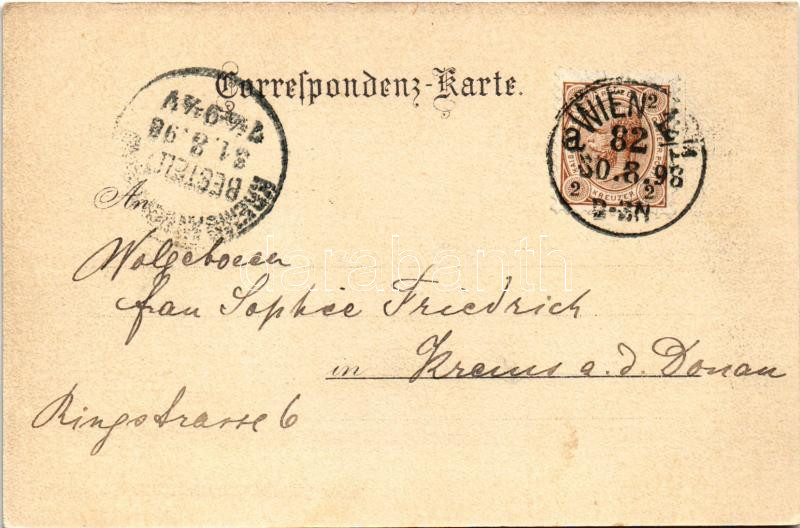 Correspondenz-Karte.
WIEN
a 82
30.8.98
2-3N
2 2
2 KREUZER 2
KREMS
BESTELLT
31.8.98
An
Wolgeboren
frau Sophie Friedrich
in Krems a. d. Donau
Ringstrasse 6
darabanth